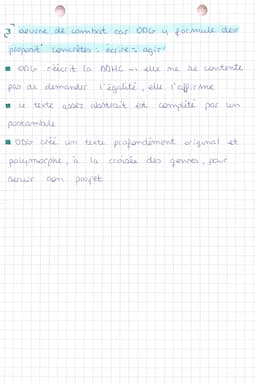 3° œuvre de combat car ODG y formule des
proposit° concrètes : écrire = agir
■ ODG réécrit la DDHC → elle ne se contente
pas de demander l'égalité, elle l'affirme
■ ce texte assez abstrait est complété par un
postambule
■ ODG crée un texte profondément original et
polymorphe, à la croisée des genres, pour
servir son projet